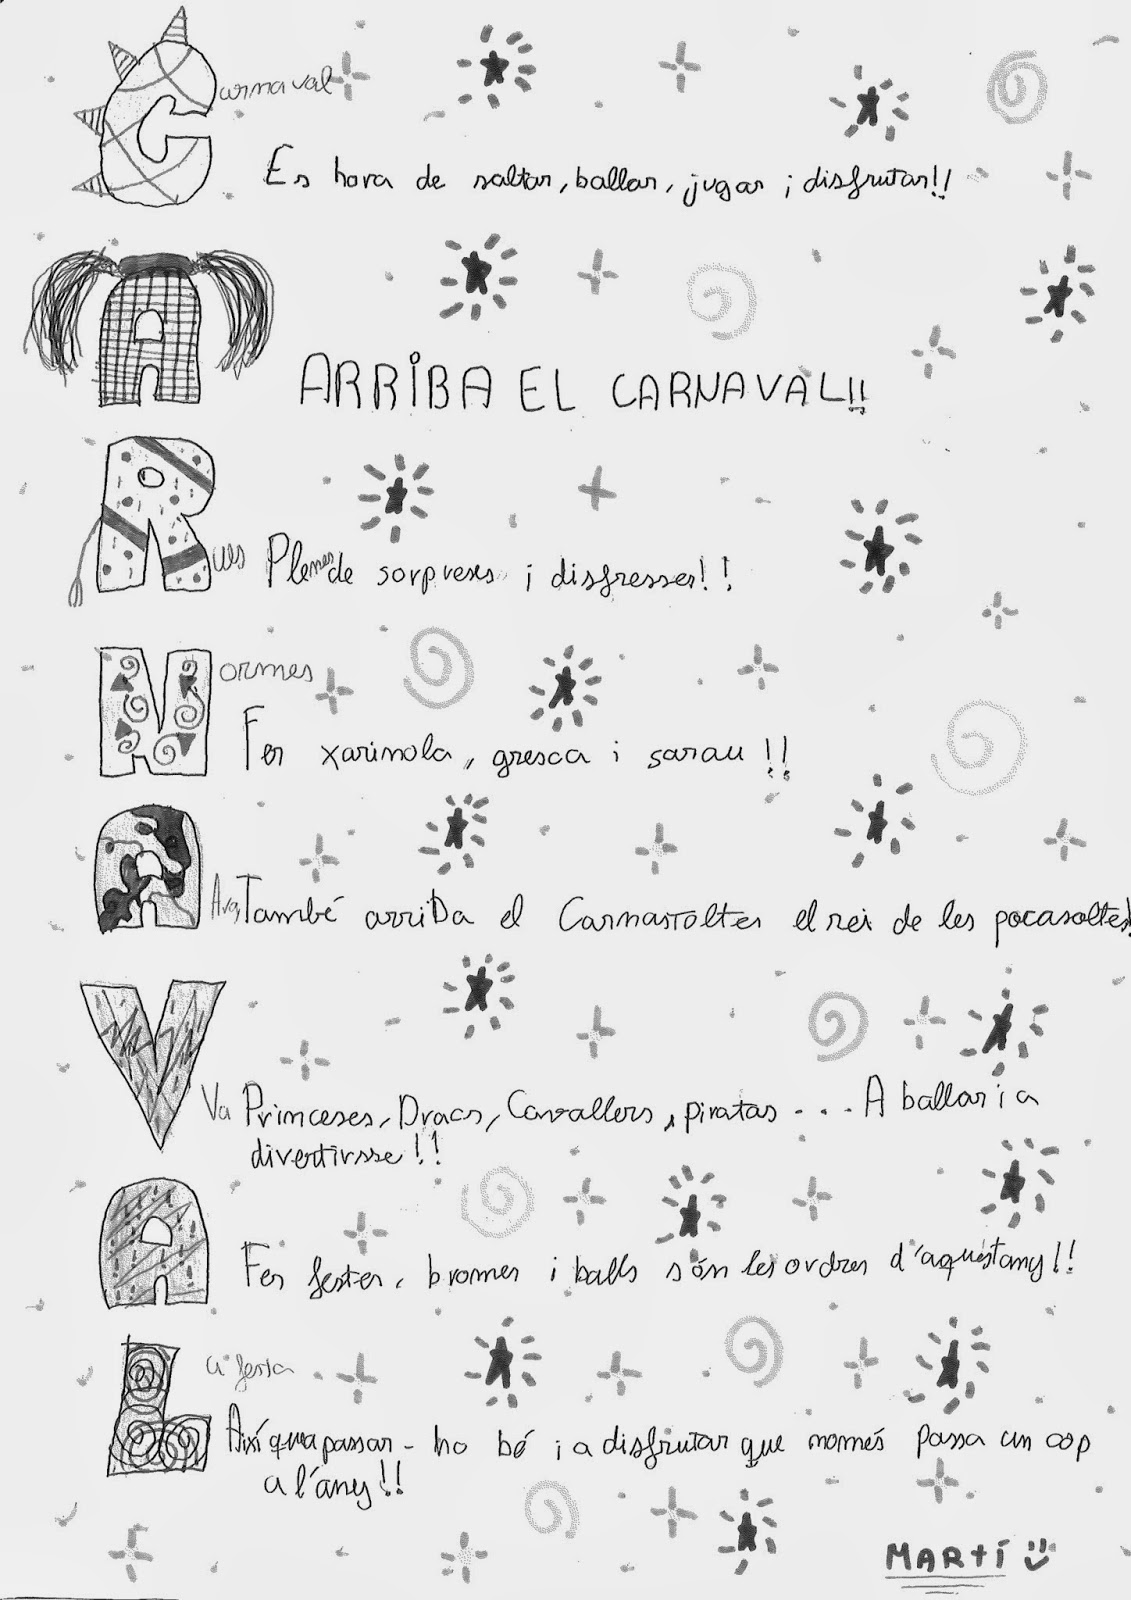 Carnaval
Es hora de saltar, ballar, jugar i disfrutar!!
A
ARRIBA EL CARNAVAL!!
Rues Plenes de sorpreses i disfresses!!
Normes
Fer xarinola, gresca i sarau !!
A
També arriba el Carnastoltes el rei de les pocasoltes!
V
Va Princeses, Dracs, Cavallers, piratas .... A ballar i a
divertirsse!!
A
Fer festes, bromes i balls són les ordres d'aquestany!!
La festa
Així que a passar-ho bé i a disfrutar que només passa un cop
a l'any!!
MARTÍ